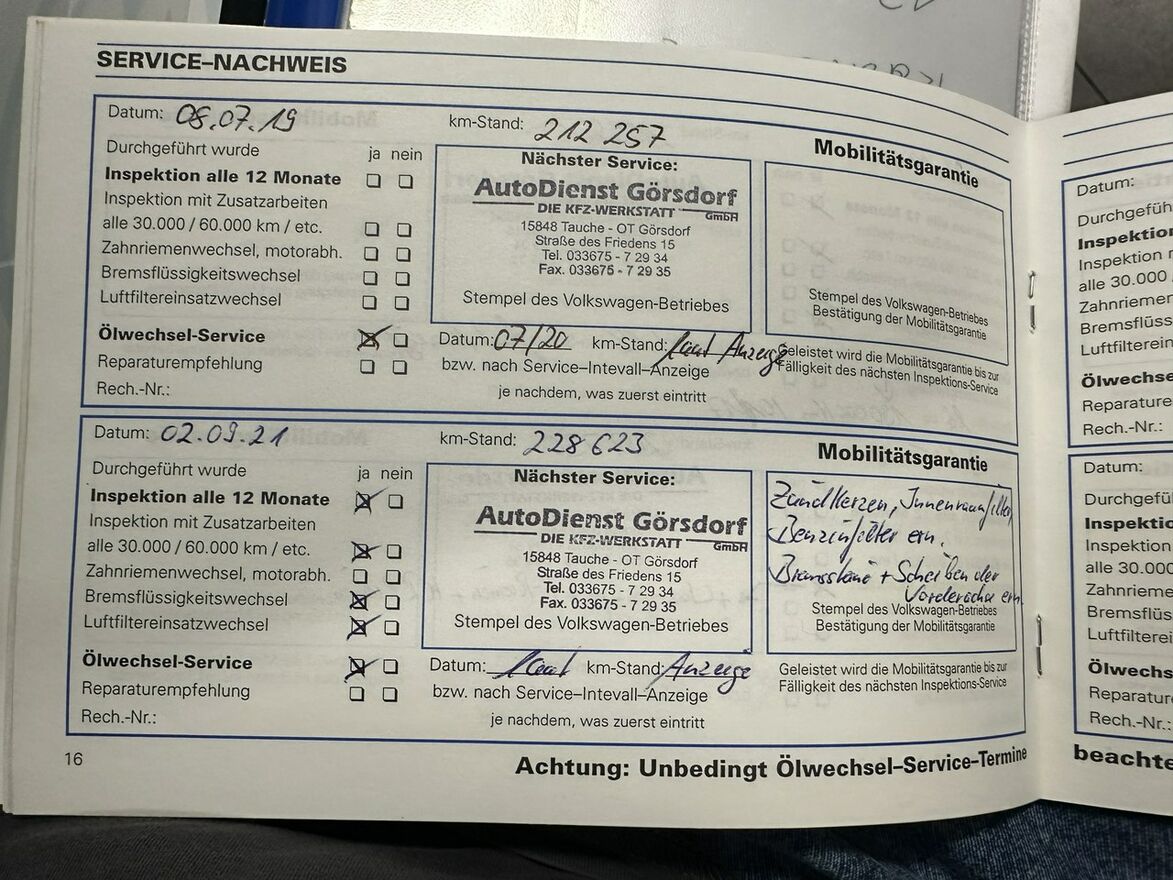 SERVICE–NACHWEIS
Datum: 08.07.19
km-Stand: 212 257
Durchgeführt wurde
ja nein
Inspektion alle 12 Monate
Inspektion mit Zusatzarbeiten
alle 30.000 / 60.000 km / etc.
Zahnriemenwechsel, motorabh.
Bremsflüssigkeitswechsel
Luftfiltereinsatzwechsel
Ölwechsel-Service
Reparaturempfehlung
Rech.-Nr.:
Nächster Service:
AutoDienst Görsdorf
DIE KFZ-WERKSTATT GmbH
15848 Tauche - OT Görsdorf
Straße des Friedens 15
Tel. 033675 - 7 29 34
Fax. 033675 - 7 29 35
Stempel des Volkswagen-Betriebes
Datum: 07/20 km-Stand: laut Anzeige
bzw. nach Service–Intevall–Anzeige
je nachdem, was zuerst eintritt
Mobilitätsgarantie
Stempel des Volkswagen-Betriebes
Bestätigung der Mobilitätsgarantie
Geleistet wird die Mobilitätsgarantie bis zur
Fälligkeit des nächsten Inspektions-Service
Datum: 02.09.21
km-Stand: 228 623
Durchgeführt wurde
ja nein
Inspektion alle 12 Monate
Inspektion mit Zusatzarbeiten
alle 30.000 / 60.000 km / etc.
Zahnriemenwechsel, motorabh.
Bremsflüssigkeitswechsel
Luftfiltereinsatzwechsel
Ölwechsel-Service
Reparaturempfehlung
Rech.-Nr.:
Nächster Service:
AutoDienst Görsdorf
DIE KFZ-WERKSTATT GmbH
15848 Tauche - OT Görsdorf
Straße des Friedens 15
Tel. 033675 - 7 29 34
Fax. 033675 - 7 29 35
Stempel des Volkswagen-Betriebes
Datum: laut km-Stand: Anzeige
bzw. nach Service–Intevall–Anzeige
je nachdem, was zuerst eintritt
Mobilitätsgarantie
Zündkerzen, Innenraumfilter,
Benzinfilter ern.
+ Scheiben der
ern.
Stempel des Volkswagen-Betriebes
Bestätigung der Mobilitätsgarantie
Geleistet wird die Mobilitätsgarantie bis zur
Fälligkeit des nächsten Inspektions-Service
16
Achtung: Unbedingt Ölwechsel–Service–Termine
Datum:
Durchgefüh
Inspektion
Inspektion
alle 30.000
Zahnriemen
Bremsflüss
Luftfilterein
Ölwechse
Reparature
Rech.-Nr.:
Datum:
Durchgefü
Inspektio
Inspektion
alle 30.000
Zahnrieme
Bremsflüs
Luftfilterei
Ölwechs
Reparatur
Rech.-Nr.:
beachte